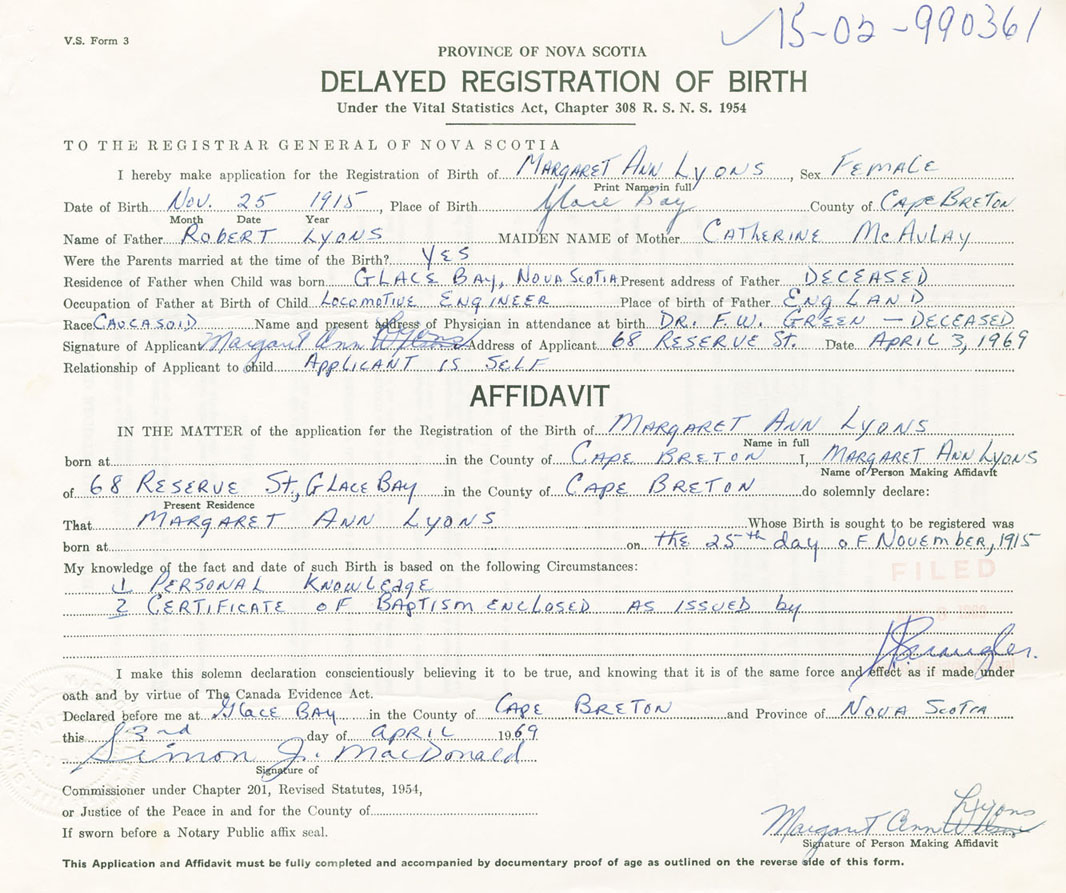 15-02-990361
V.S. Form 3
PROVINCE OF NOVA SCOTIA
DELAYED REGISTRATION OF BIRTH
Under the Vital Statistics Act, Chapter 308 R. S. N. S. 1954
TO THE REGISTRAR GENERAL OF NOVA SCOTIA
I hereby make application for the Registration of Birth of MARGARET ANN LYONS, Sex FEMALE
Print Name in full
Date of Birth Nov. 25 1915, Place of Birth Glace Bay County of CAPE BRETON
Month Date Year
Name of Father ROBERT LYONS MAIDEN NAME of Mother CATHERINE McAULAY
Were the Parents married at the time of the Birth? YES
Residence of Father when Child was born GLACE BAY, NOVA SCOTIA Present address of Father DECEASED
Occupation of Father at Birth of Child LOCOMOTIVE ENGINEER Place of birth of Father ENGLAND
Race CAUCASOID Name and present address of Physician in attendance at birth DR. F.W. GREEN — DECEASED
Signature of Applicant Margaret Ann Lyons Address of Applicant 68 RESERVE ST. Date APRIL 3, 1969
Relationship of Applicant to child APPLICANT IS SELF
AFFIDAVIT
IN THE MATTER of the application for the Registration of the Birth of MARGARET ANN LYONS
Name in full
born at in the County of CAPE BRETON I, MARGARET ANN LYONS
Name of Person Making Affidavit
of 68 RESERVE St., GLACE BAY in the County of CAPE BRETON do solemnly declare:
Present Residence
That MARGARET ANN LYONS Whose Birth is sought to be registered was
born at on the 25th day of NOVEMBER, 1915
My knowledge of the fact and date of such Birth is based on the following Circumstances:
FILED
1 PERSONAL KNOWLEDGE
2 CERTIFICATE OF BAPTISM ENCLOSED AS ISSUED by
I make this solemn declaration conscientiously believing it to be true, and knowing that it is of the same force and effect as if made under
oath and by virtue of The Canada Evidence Act.
Declared before me at Glace BAY in the County of CAPE BRETON and Province of NOVA SCOTIA
this 3rd day of APRIL 1969
Simon J. MacDonald
Signature of
Commissioner under Chapter 201, Revised Statutes, 1954,
or Justice of the Peace in and for the County of
If sworn before a Notary Public affix seal.
Margaret Ann Wilson Lyons
Signature of Person Making Affidavit
This Application and Affidavit must be fully completed and accompanied by documentary proof of age as outlined on the reverse side of this form.